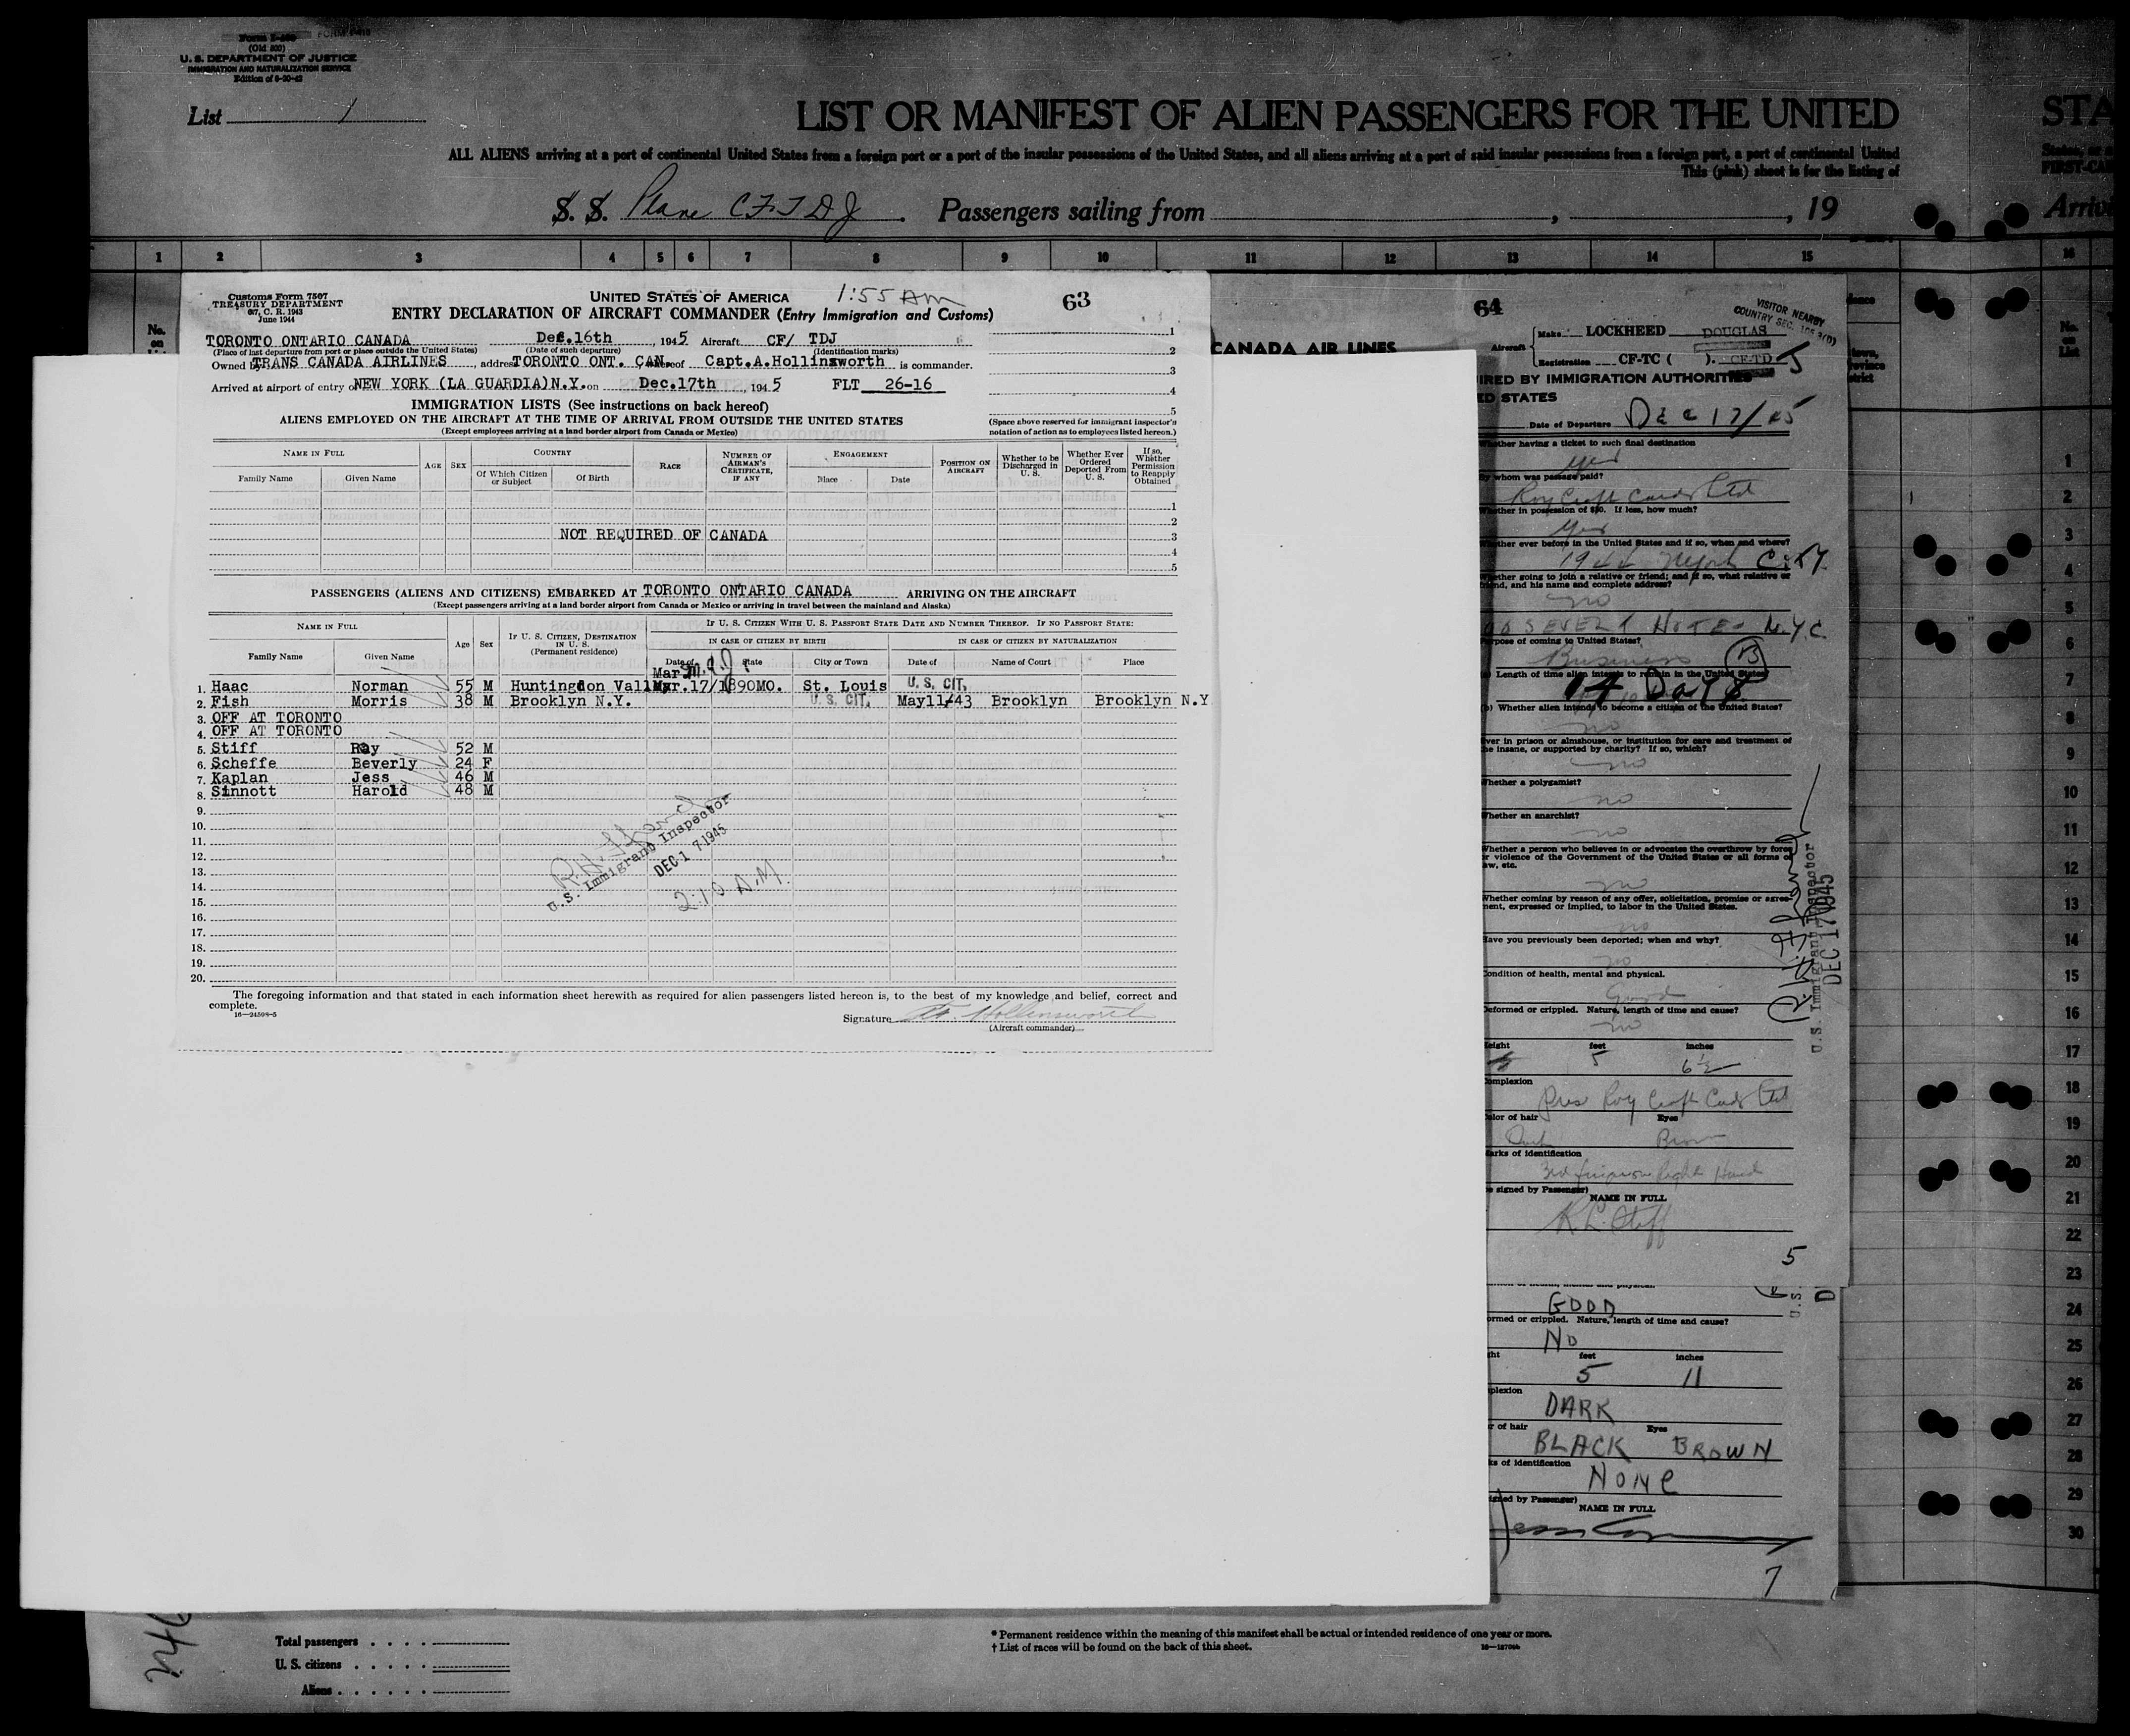 (Old 500)
U. S. DEPARTMENT OF JUSTICE
IMMIGRATION AND NATURALIZATION SERVICE
List 1
LIST OR MANIFEST OF ALIEN PASSENGERS FOR THE UNITED STA
ALL ALIENS arriving at a port of continental United States from a foreign port or a port of the insular possessions of the United States, and all aliens arriving at a port of said insular possessions from a foreign port, a port of continental United
This (pink) sheet is for the listing of
S. S. Plane CFTDJ. Passengers sailing from , , 19
1 2 3 4 5 6 7 8 9 10 11 12 13 14 15 16
No. on
Customs Form 7507
TREASURY DEPARTMENT
June 1944
UNITED STATES OF AMERICA 1:55 AM 63
ENTRY DECLARATION OF AIRCRAFT COMMANDER (Entry Immigration and Customs)
TORONTO ONTARIO CANADA Dec.16th, 1945 Aircraft CF/ TDJ
(Place of last departure from port or place outside the United States) (Date of such departure) (Identification marks)
Owned by TRANS CANADA AIRLINES, address TORONTO ONT. CAN. Capt.A.Hollinsworth is commander.
Arrived at airport of entry of NEW YORK (LA GUARDIA)N.Y. on Dec.17th, 1945 FLT 26-16
1
2
3
4
5
IMMIGRATION LISTS (See instructions on back hereof)
ALIENS EMPLOYED ON THE AIRCRAFT AT THE TIME OF ARRIVAL FROM OUTSIDE THE UNITED STATES
(Except employees arriving at a land border airport from Canada or Mexico)
(Space above reserved for immigrant inspector's notation of action as to employees listed hereon.)
NAME IN FULL
Family Name Given Name
AGE SEX
COUNTRY
Of Which Citizen or Subject Of Birth
RACE
NUMBER OF AIRMAN'S CERTIFICATE, IF ANY
ENGAGEMENT
Place Date
POSITION ON AIRCRAFT
Whether to be Discharged in U. S.
Whether Ever Ordered Deported From U. S.
If so, Whether Permission to Reapply Obtained
1
2
NOT REQUIRED OF CANADA 3
4
5
PASSENGERS (ALIENS AND CITIZENS) EMBARKED AT TORONTO ONTARIO CANADA ARRIVING ON THE AIRCRAFT
(Except passengers arriving at a land border airport from Canada or Mexico or arriving in travel between the mainland and Alaska)
NAME IN FULL
Family Name Given Name
Age Sex
IF U. S. CITIZEN, DESTINATION IN U. S. (Permanent residence)
IF U. S. CITIZEN WITH U. S. PASSPORT STATE DATE AND NUMBER THEREOF. IF NO PASSPORT STATE:
IN CASE OF CITIZEN BY BIRTH IN CASE OF CITIZEN BY NATURALIZATION
Date of State City or Town Date of Name of Court Place
1. Haac Norman 55 M Huntingdon Valley Mar.17/1890 MO. St. Louis U. S. CIT.
2. Fish Morris 38 M Brooklyn N.Y. U. S. CIT. May11/43 Brooklyn Brooklyn N.Y
3. OFF AT TORONTO
4. OFF AT TORONTO
5. Stiff Ray 52 M
6. Scheffe Beverly 24 F
7. Kaplan Jess 46 M
8. Sinnott Harold 48 M
9.
10.
11.
12.
13.
14.
15.
16.
17.
18.
19.
20.
U.S. Immigrant Inspector
DEC 1 7 1945
2:10 A.M.
The foregoing information and that stated in each information sheet herewith as required for alien passengers listed hereon is, to the best of my knowledge and belief, correct and complete.
16—24598-5
Signature Hollinsworth
(Aircraft commander)
64
VISITOR NEARBY
COUNTRY SEC.
CANADA AIR LINES
Aircraft
Make LOCKHEED DOUGLAS
Registration CF-TC ( ). CF-TD J
IRED BY IMMIGRATION AUTHORITIES
ED STATES
Date of Departure DEC 17/45
whether having a ticket to such final destination
yes
By whom was passage paid?
Roy Craft Cards Ltd
Whether in possession of $50. If less, how much?
yes
Whether ever before in the United States and if so, when and where?
1944 City
Whether going to join a relative or friend; and if so, what relative or friend, and his name and complete address?
no
N.Y.C.
Purpose of coming to United States?
Business
Length of time alien intends to remain in the United States
14 Days
(b) Whether alien intends to become a citizen of the United States?
no
Ever in prison or almshouse, or institution for care and treatment of the insane, or supported by charity? If so, which?
no
Whether a polygamist?
no
Whether an anarchist?
no
Whether a person who believes in or advocates the overthrow by force or violence of the Government of the United States or all forms of law, etc.
no
Whether coming by reason of any offer, solicitation, promise or agreement, expressed or implied, to labor in the United States.
no
Have you previously been deported; when and why?
no
Condition of health, mental and physical.
Good
Deformed or crippled. Nature, length of time and cause?
no
Height feet inches
5 6½
Complexion
Pres Roy Craft Cards Ltd
Color of hair Eyes
Dark Brown
Marks of identification
Right Hand
(be signed by Passenger)
NAME IN FULL
R. L. Stiff
5
U.S. Immigrant Inspector
DEC 17 1945
GOOD
ormed or crippled. Nature, length of time and cause?
No
ght feet inches
5 11
plexion
DARK
r of hair Eyes
BLACK BROWN
ks of identification
NONE
igned by Passenger)
NAME IN FULL
7
No. on List
1
2
3
4
5
6
7
8
9
10
11
12
13
14
15
16
17
18
19
20
21
22
23
24
25
26
27
28
29
30
Total passengers
U. S. citizens
Aliens
* Permanent residence within the meaning of this manifest shall be actual or intended residence of one year or more.
† List of races will be found on the back of this sheet.